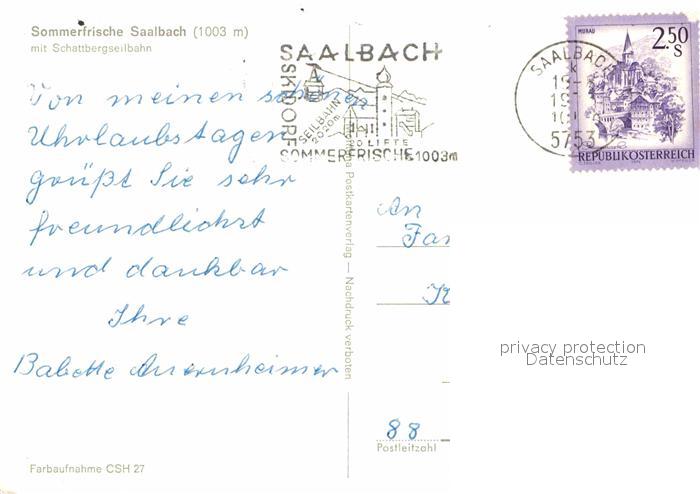 Sommerfrische Saalbach (1003 m)
mit Schattbergseilbahn
SAALBACH
SKIDORF
SEILBAHN
2020m
20 LIFTE
SOMMERFRISCHE 1003m
SAALBACH
5753
MURAU
2.50
S
REPUBLIK ÖSTERREICH
Von meinen schönen
Uhrlaubstagen
grüßt Sie sehr
freundlichst
und dankbar
Ihre
Babette
Postkartenverlag — Nachdruck verboten
An
Fa
88
Postleitzahl
privacy protection
Datenschutz
Farbaufnahme CSH 27